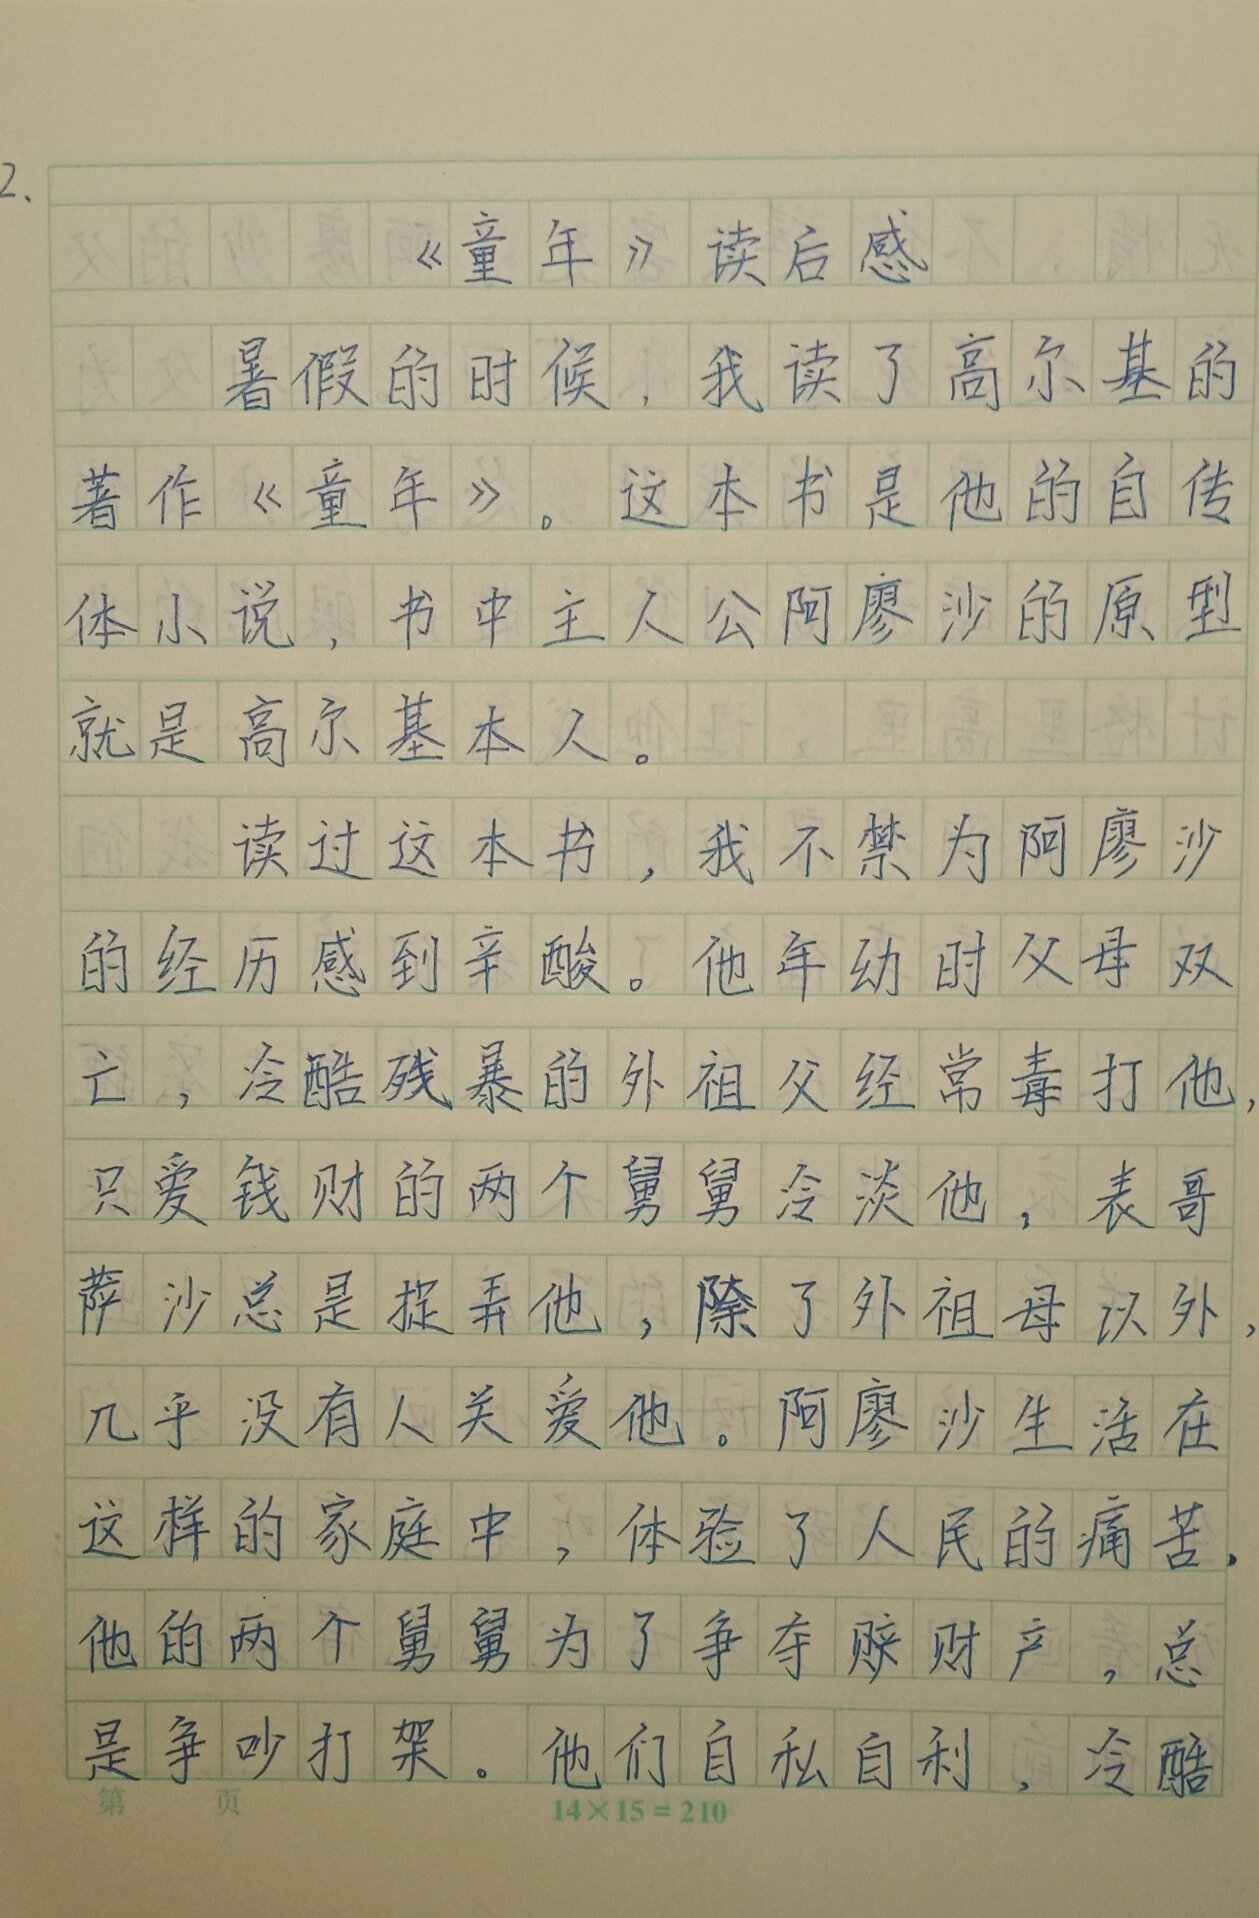 2、
《童年》读后感
暑假的时候，我读了高尔基的
著作《童年》。这本书是他的自传
体小说，书中主人公阿廖沙的原型
就是高尔基本人。
读过这本书，我不禁为阿廖沙
的经历感到辛酸。他年幼时父母双
亡，冷酷残暴的外祖父经常毒打他，
只爱钱财的两个舅舅冷淡他，表哥
萨沙总是捉弄他，除了外祖母以外，
几乎没有人关爱他。阿廖沙生活在
这样的家庭中，体验了人民的痛苦。
他的两个舅舅为了争夺赔财产，总
是争吵打架。他们自私自利，冷酷
第 页
14×15=210